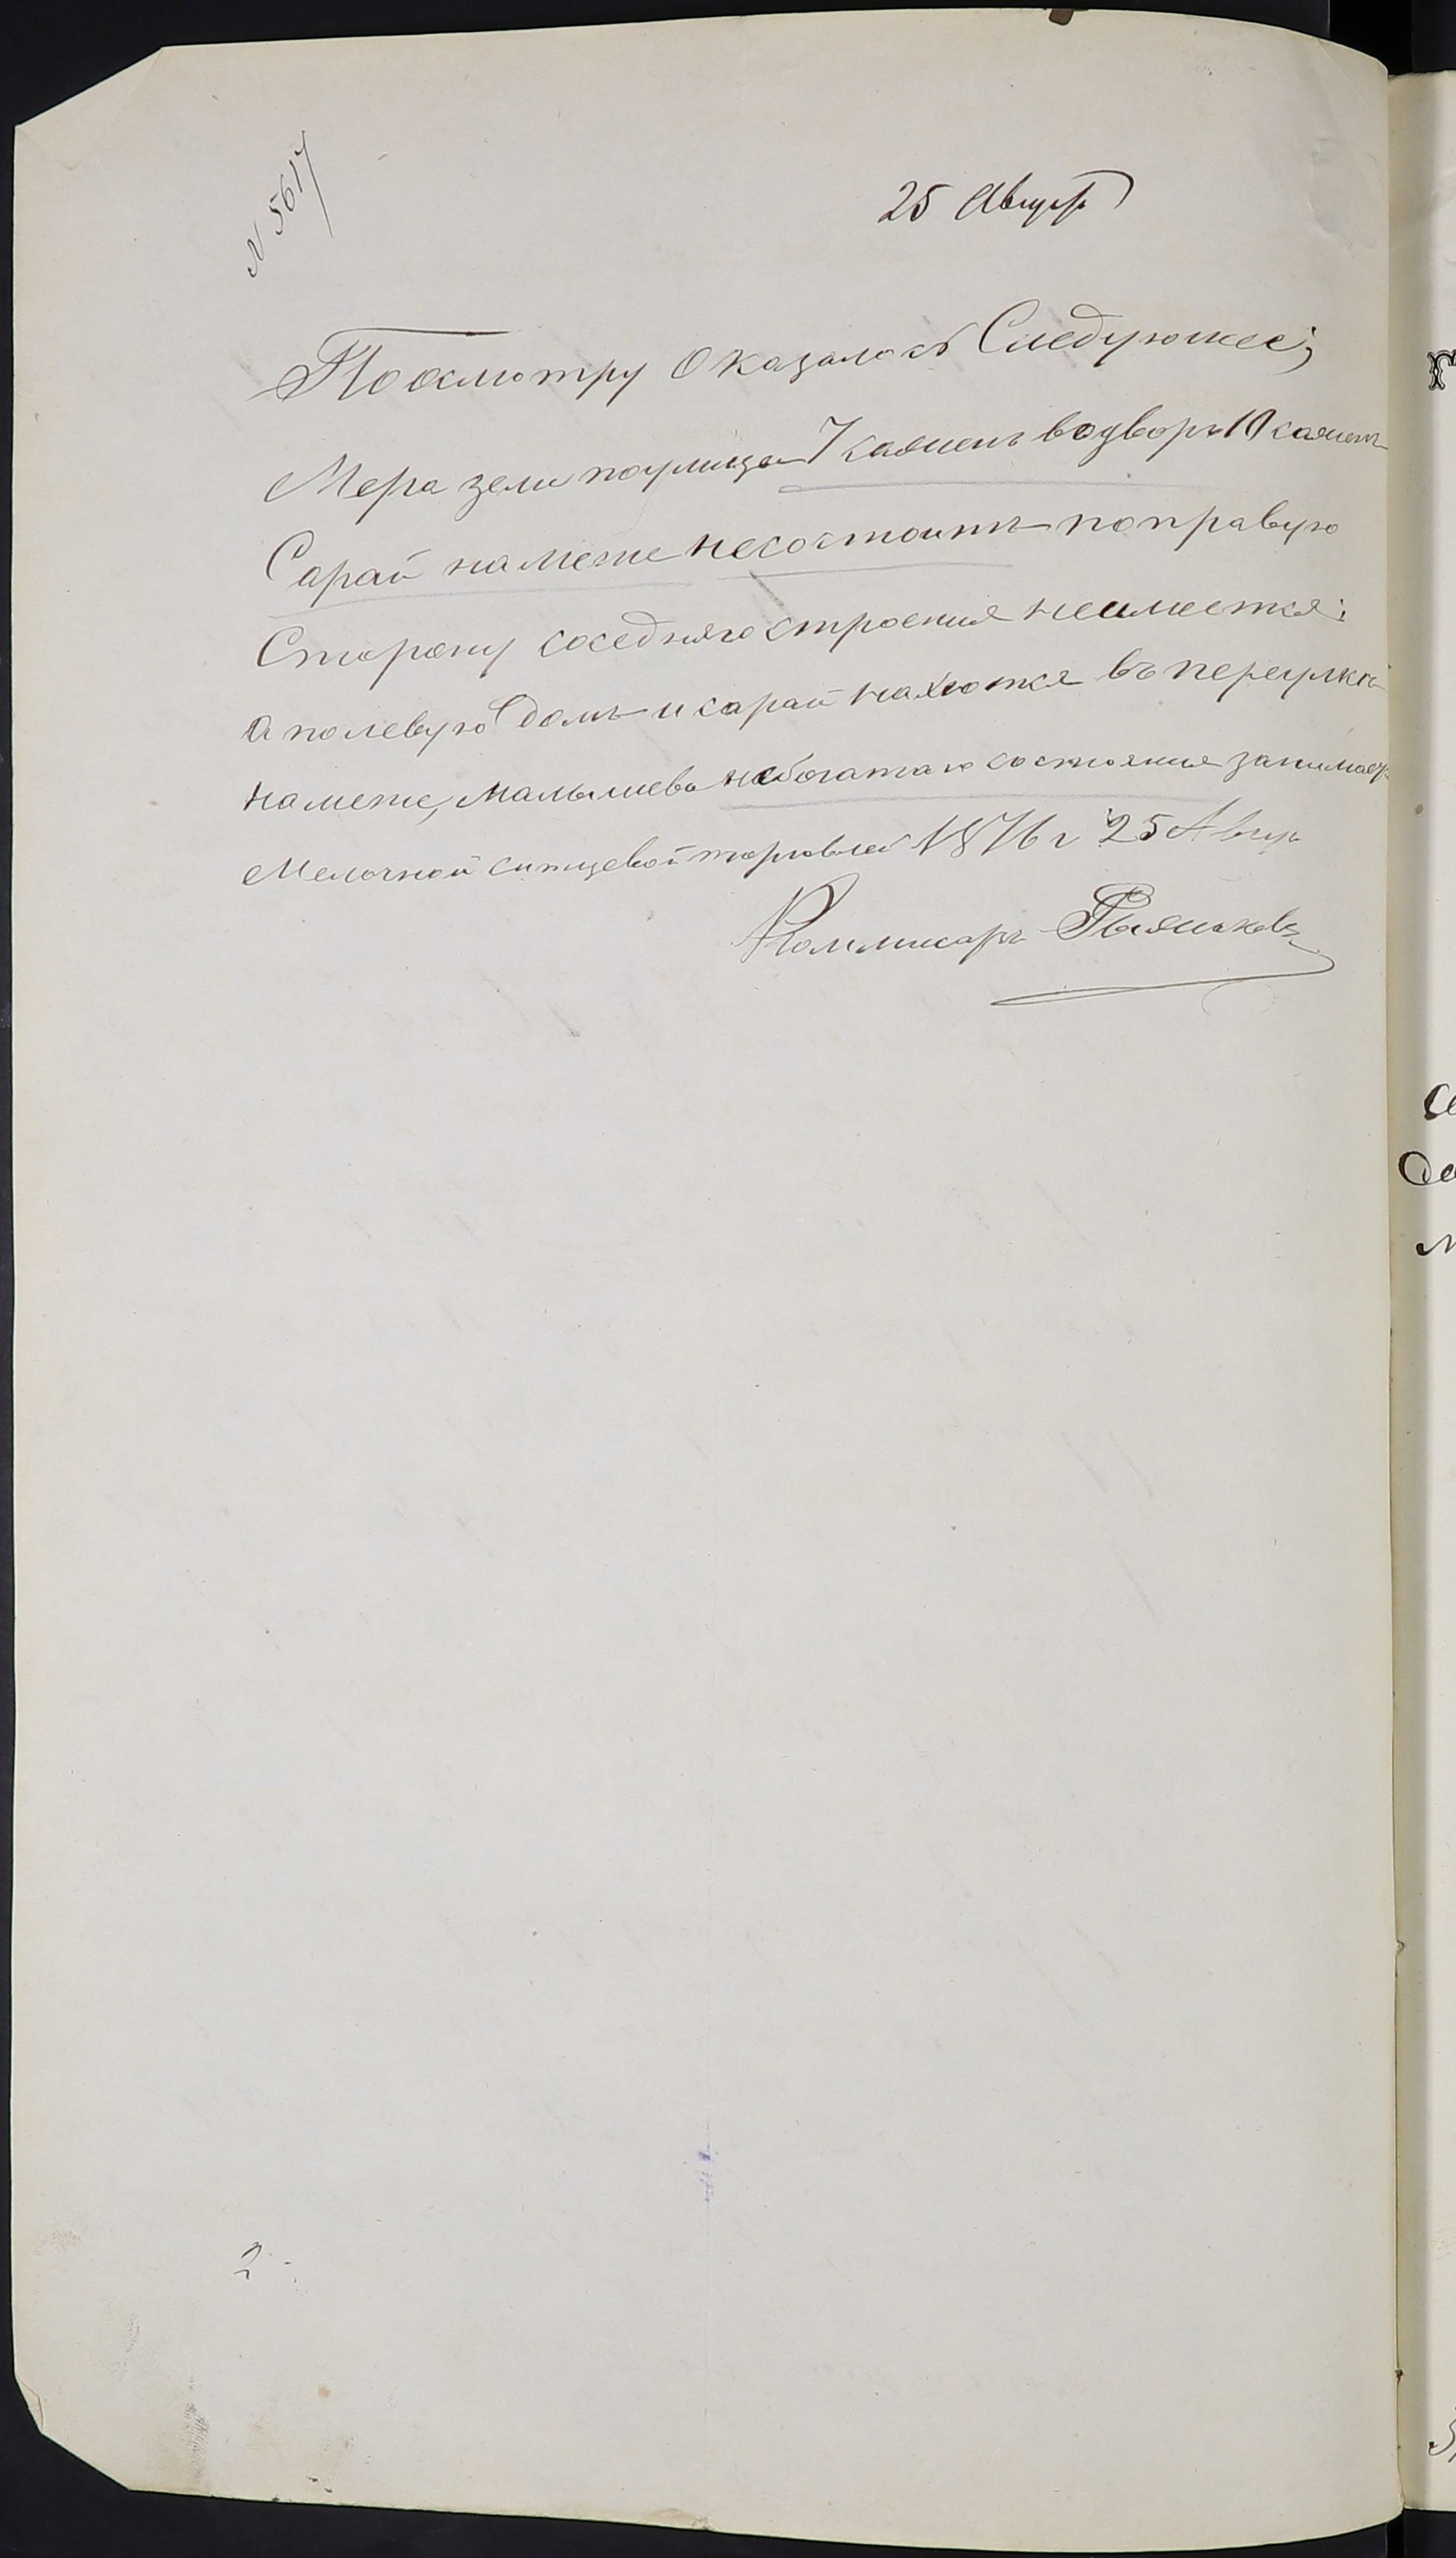 N 5617
25 Август
По осмотру Оказалось Следующее;
Мера земли по улице 7 сажень во дворъ 10 сажень
Сарай на меже несостоитъ по правую
Сторону соседняго строения неимеется;
а по левую Домъ и сарай находятся въ переулкѣ
на меже, Малышева небогатаго состояния занимает
Мелочной ситцевой торговлей 1876 г 25 Авгу
Коммисаръ
2